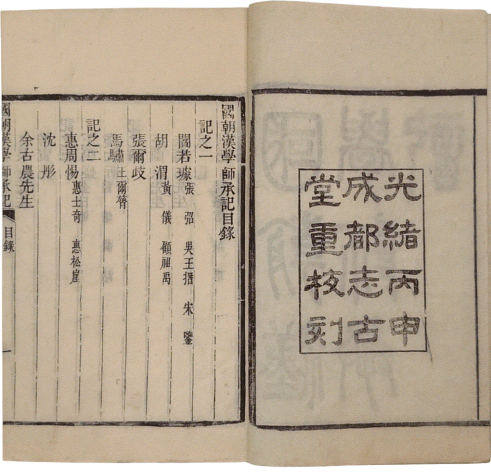 光緒丙申
成都志古
堂重校刻
國朝漢學師承記目錄
記之一
閻若璩 張弨 吳玉搢 宋鑒
胡渭 黃儀 顧祖禹
張爾歧
馬驌 王爾膂
記之二
惠周惕 惠士奇 惠松崖
沈彤
余古農先生
國朝漢學師承記 目錄 一